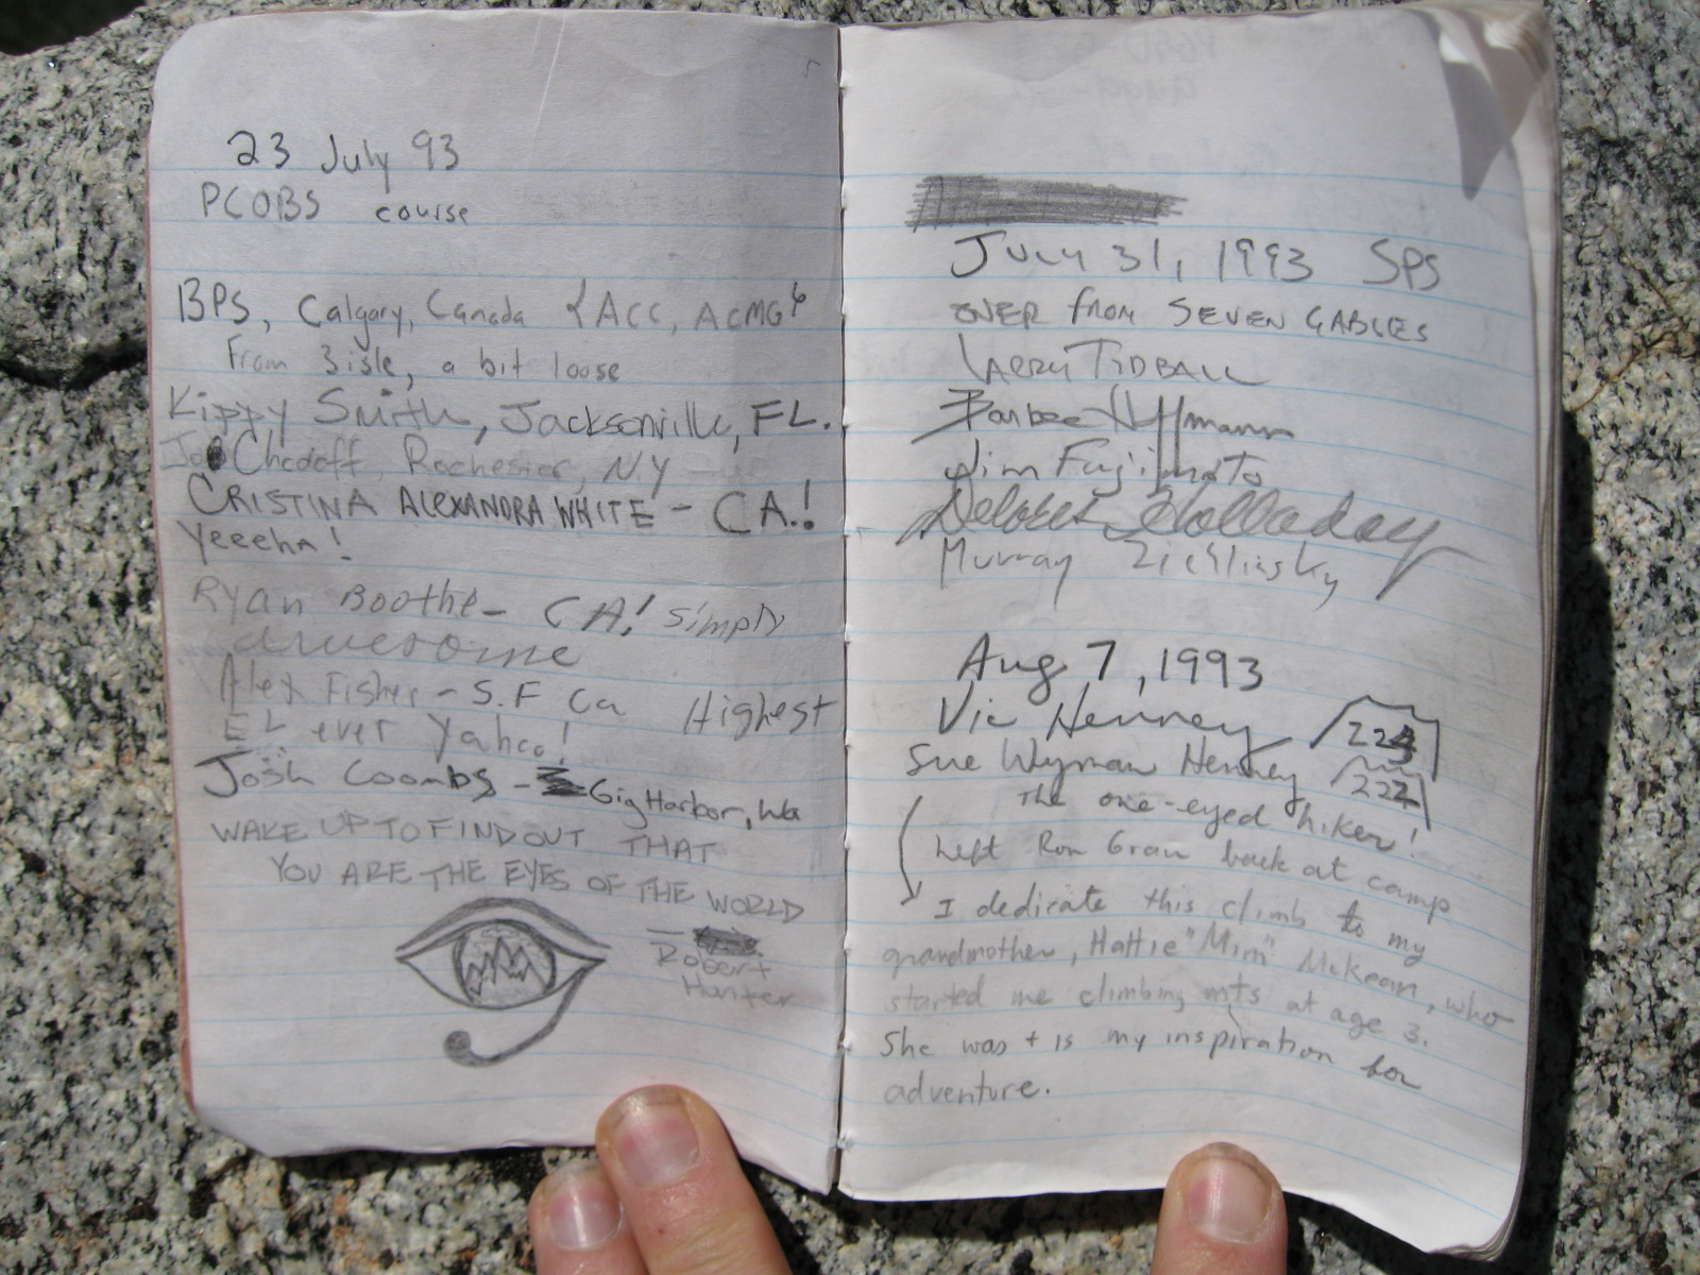 23 July 93
PCOBS course
BPS, Calgary, Canada {ACC, ACMG}
From 3isle, a bit loose
Kippy Smith, Jacksonville, FL.
Chodoff, Rochester, NY
CRISTINA ALEXANDRA WHITE - CA.!
Yeeeha!
Ryan Boothe - CA! Simply
awesome
Alex Fisher - S.F Ca Highest
EL ever Yahoo!
Josh Coombs - Gig Harbor, Wa
WAKE UP TO FIND OUT THAT
YOU ARE THE EYES OF THE WORLD
- Robert
Hunter
July 31, 1993 SPS
OVER from SEVEN GABLES
LARRY TIDBALL
Barbee Hoffmann
Jim Fujimoto
Delores Holladay
Murray
Aug 7, 1993
Vic Henney 223
Sue Wyman Henney 222
The one-eyed hiker!
Left Ron Grau back at camp
I dedicate this climb to my
grandmother, Hattie "Mim" McKean, who
started me climbing mts at age 3.
She was + is my inspiration for
adventure.